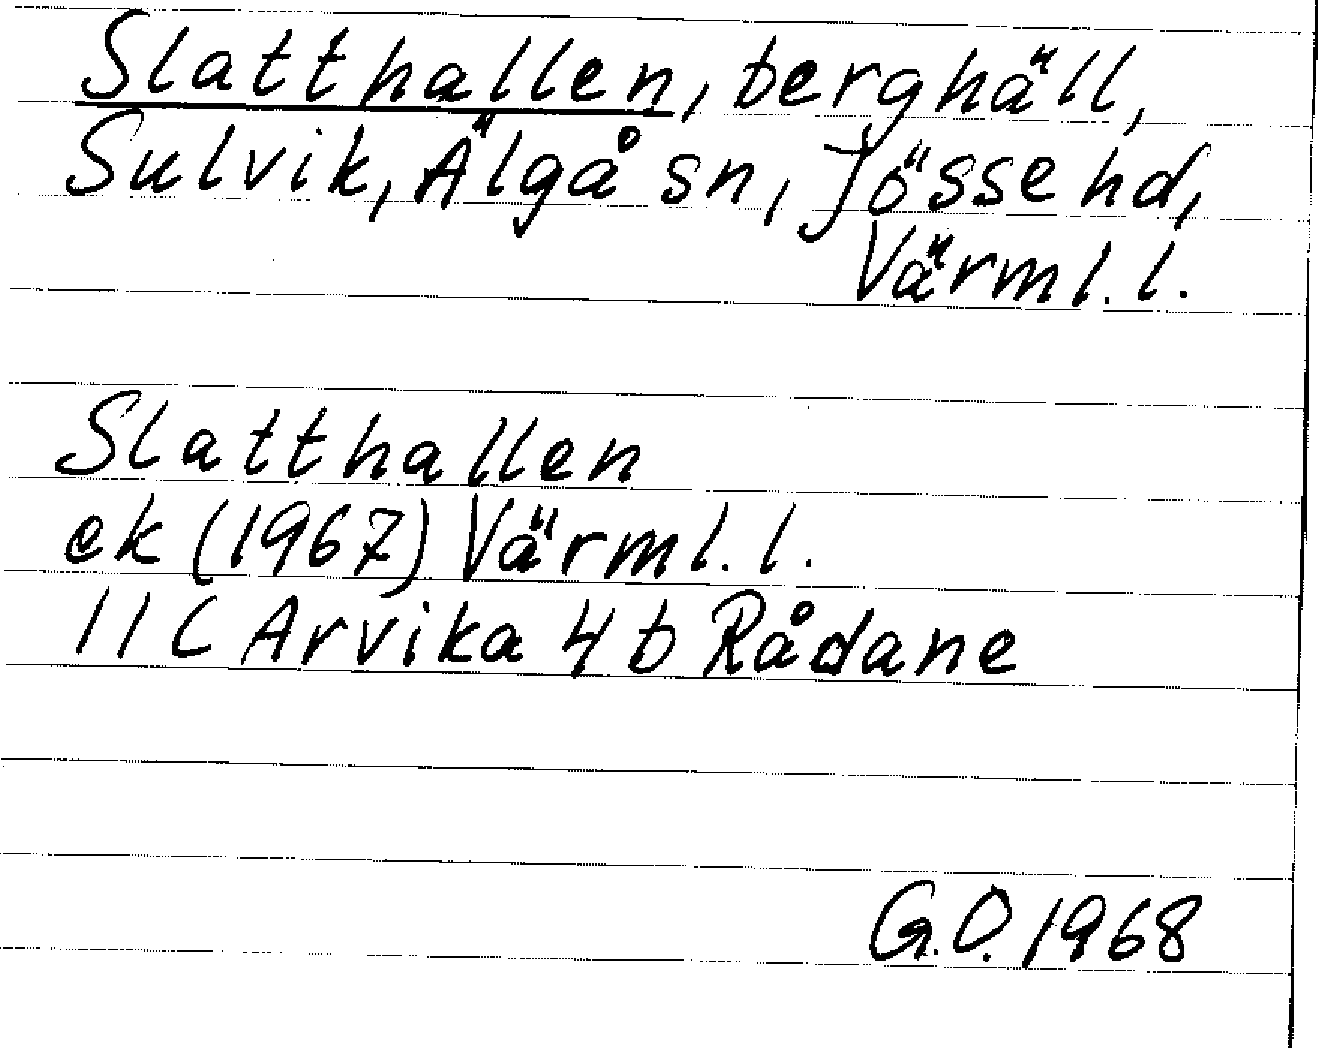 Slatthallen, berghäll,
Sulvik, Älgå sn, Jösse hd,
Värml. l.
Slatthallen
ek (1967) Värml. l.
11C Arvika 4b Rådane
G.O. 1968